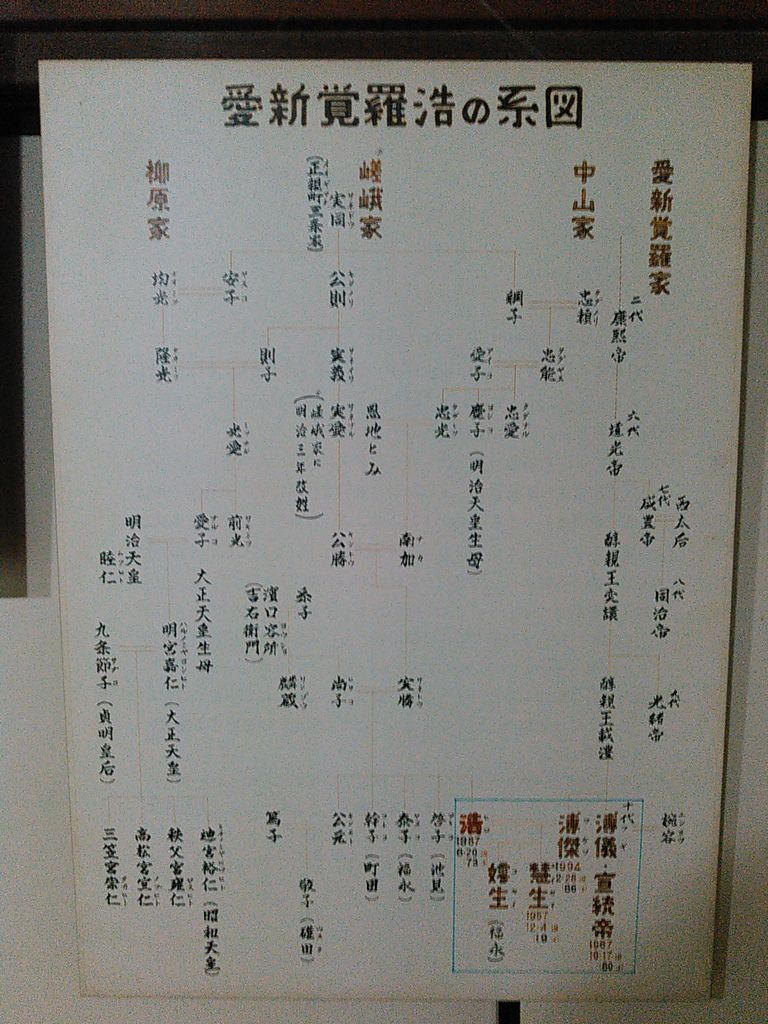 愛新覚羅浩の系図
愛新覚羅家
中山家
嵯峨家
柳原家
(正親町三条家)
実同
安子
公則
均光
綢子
忠頼
二代
康熙帝
隆光
則子
実義
愛子
忠能
光愛
(嵯峨家に
明治三年改姓)
実愛
恩地とみ
忠光
慶子(明治天皇生母)
忠愛
六代
道光帝
七代
咸豊帝
西太后
明治天皇
睦仁
愛子 大正天皇生母
前光
公勝
南加
醇親王奕譞
八代
同治帝
九条節子(貞明皇后)
明宮嘉仁(大正天皇)
濱口容所
(吉右衛門)
尚子
実勝
醇親王載灃
九代
光緒帝
三笠宮崇仁
高松宮宣仁
秩父宮雍仁
迪宮裕仁(昭和天皇)
篤子
公元
幹子(町田)
泰子(福永)
啓子(池見)
浩
1987
6・20
嫮生
(福永)
慧生
1957
12・4
19
溥傑
1994
2・28
86
十代
溥儀・宣統帝
1967
10・17
婉容